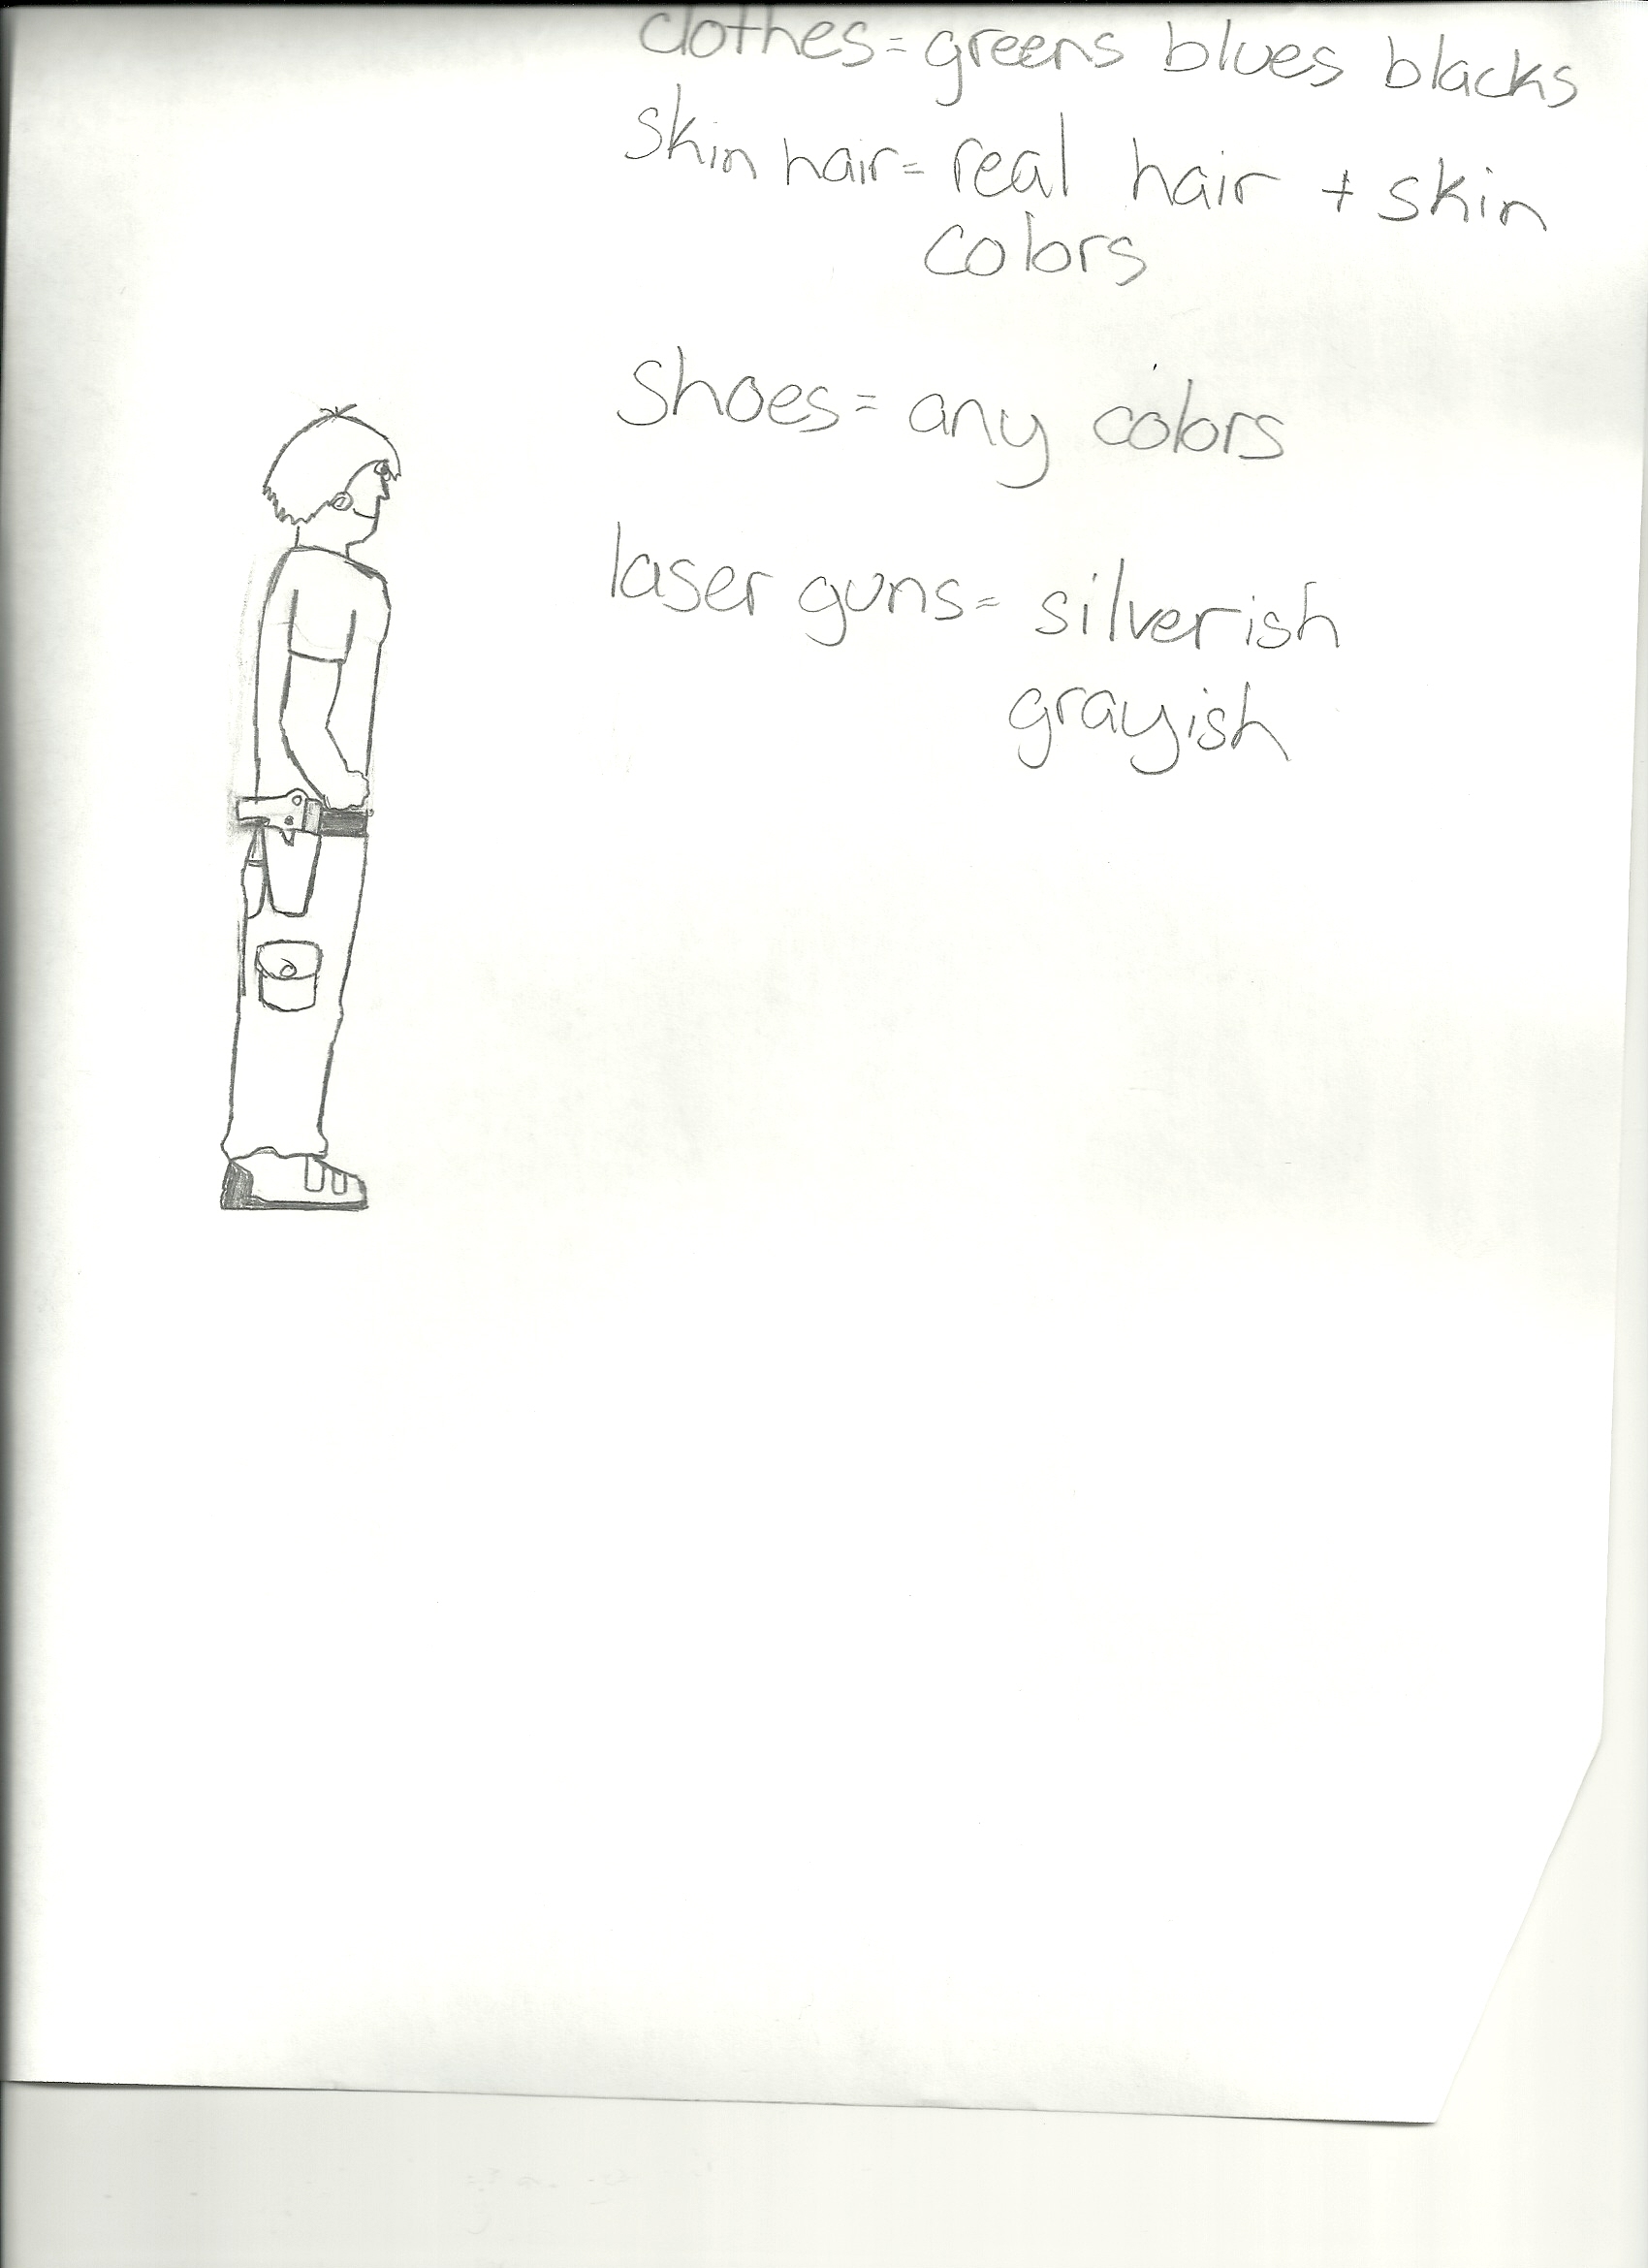 clothes = greens blues blacks
skin hair = real hair + skin
colors
shoes = any colors
laser guns = silverish
grayish